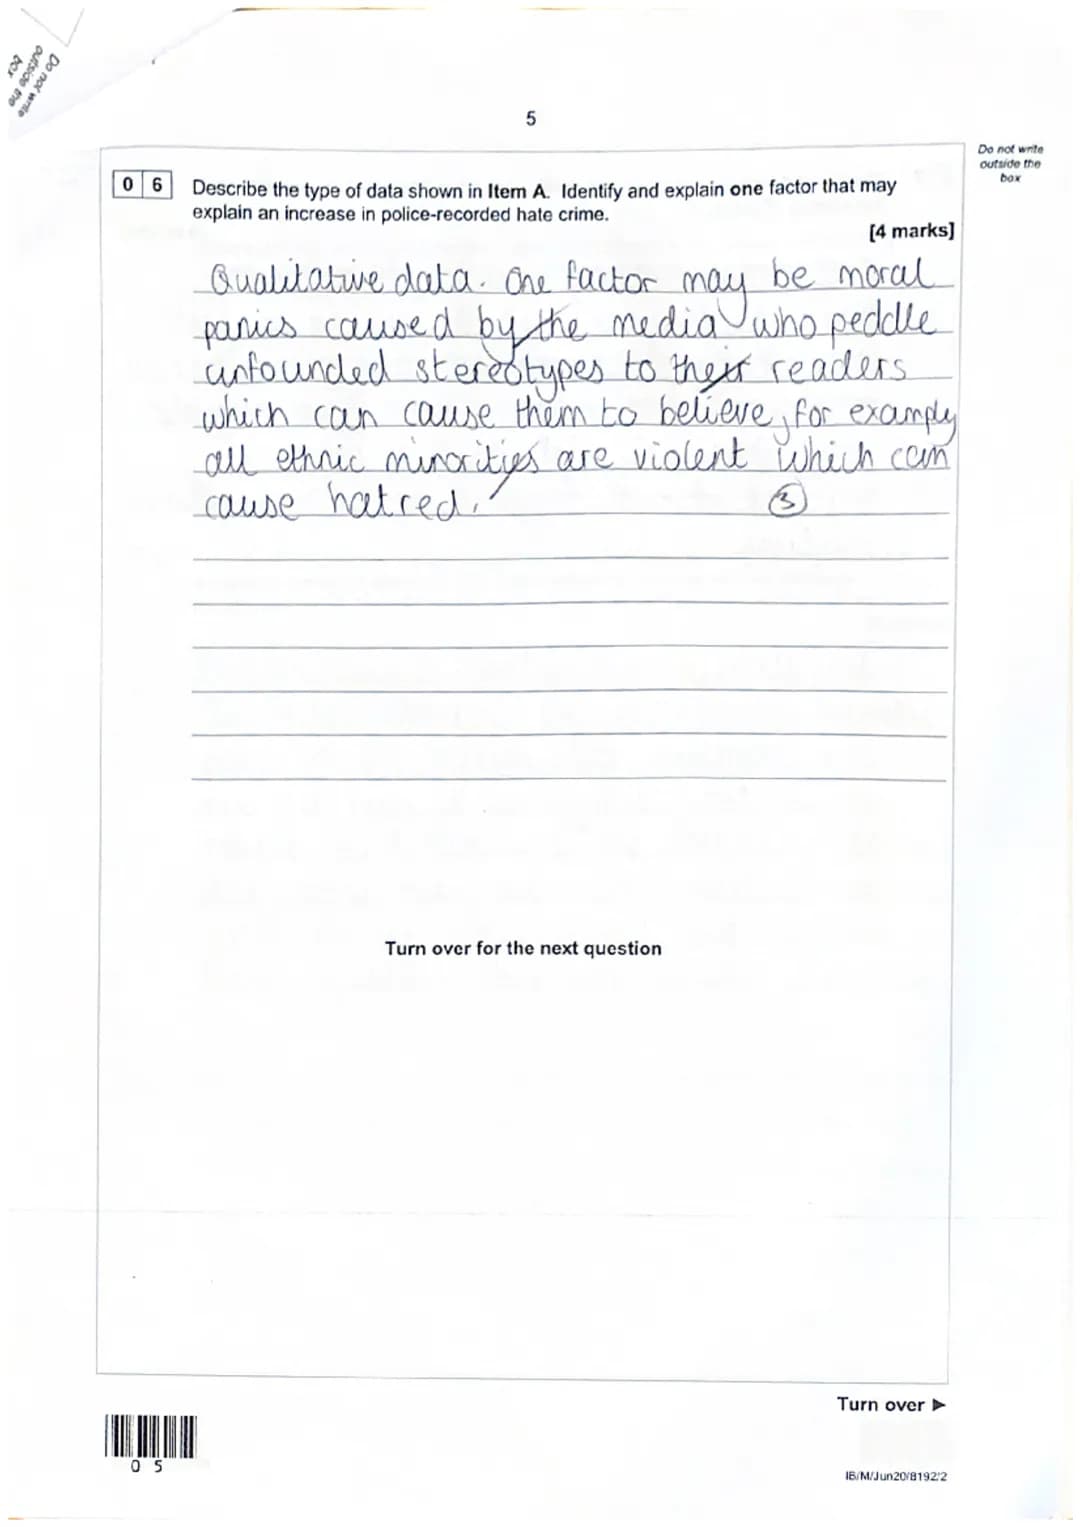 Do not write
outside the
box
5
Do not write
outside the
box
0 6 Describe the type of data shown in Item A. Identify and explain one factor that may
explain an increase in police-recorded hate crime.
[4 marks]
Qualitative data. One factor may be moral
panics caused by the media who peddle
unfounded stereotypes to their readers
which can cause them to believe, for example,
all ethnic minorities are violent which can
cause hatred.
3
Turn over for the next question
Turn over ►
0 5
IB/M/Jun20/8192/2